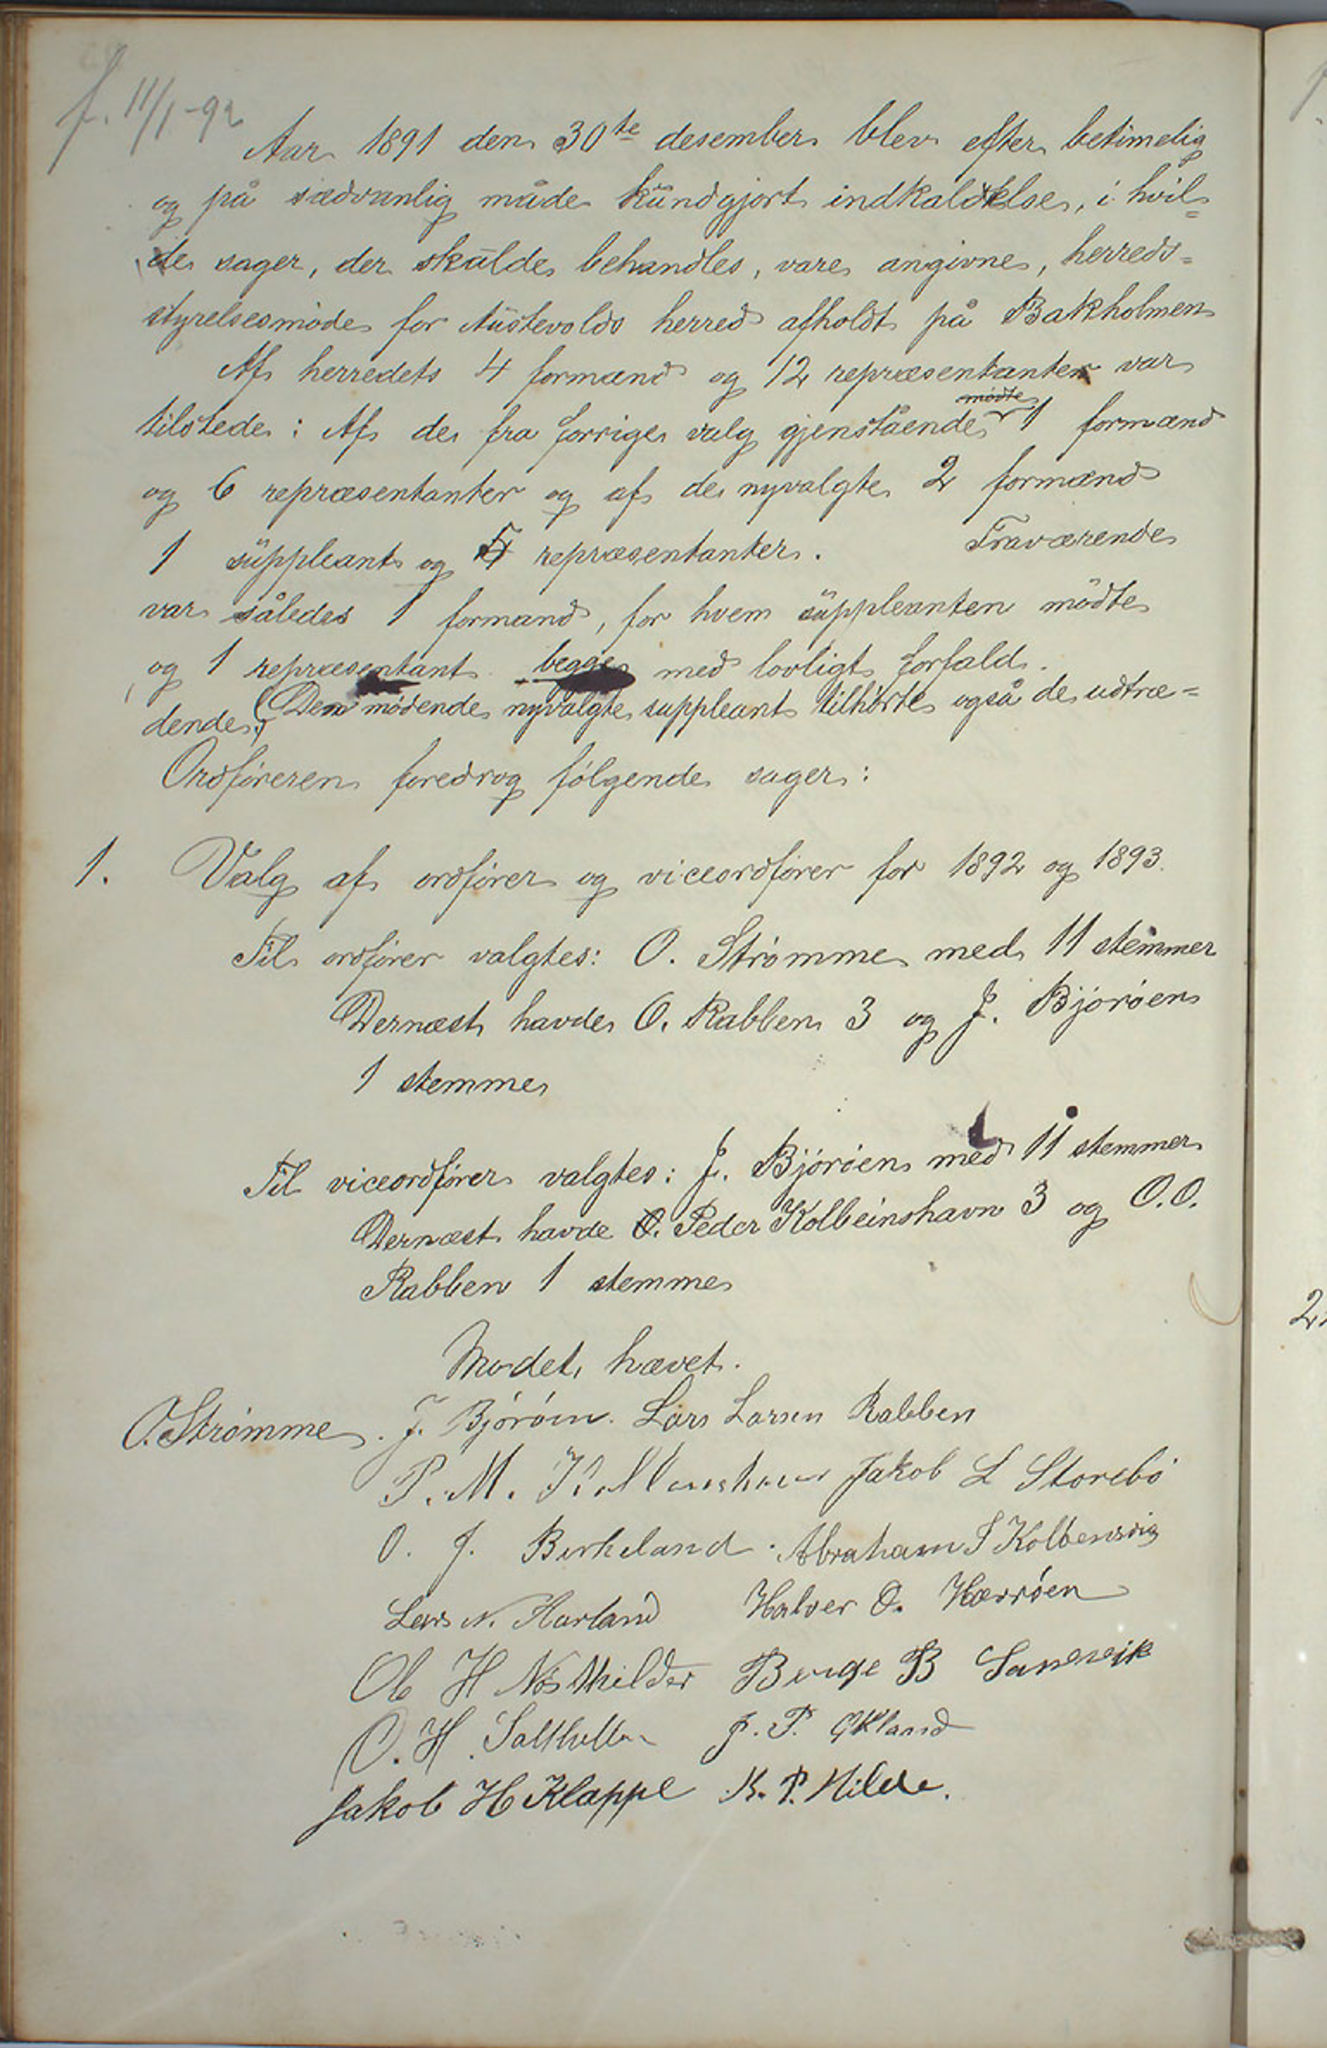 f. 11/1-92
Aar 1891 den 30te desember blev efter betimelig
og på sædvanlig måde kundgjort indkaldelse, i hvil=
de sager, der skulde behandles, vare angivne, herreds=
styrelsesmøde for Austevolds herred afholdt på Bakholmen
Af herredets 4 formænd og 12 repræsentanter var
mødte
tilstede: Af de fra forrige valg gjenstående 1 formænd
og 6 repræsentanter og af de nyvalgte 2 formænd
1 suppleant og 5 repræsentanter. Fraværende
var således 1 formand, for hvem suppleanten mødte
og 1 repræsentant begge med lovligt forfald.
(Den mødende nyvalgte suppleant tilhørte også de udtræ=
dende.)
Ordføreren foredrog følgende sager:
1. Valg af ordfører og viceordfører for 1892 og 1893.
Til ordfører valgtes: O. Strømme med 11 stemmer
Dernæst havde O. Rabben 3 og J. Bjørøen
1 stemme
Til viceordfører valgtes: J. Bjørøen med 11 stemmer
Dernæst havde Peder Kolbeinshavn 3 og O. O.
Rabben 1 stemme
Mødet hævet.
O. Strømme. J. Bjørøen. Lars Larsen Rabben
P. M. Jakob L Storebø
O. J. Birkeland. Abraham S Kolbensvig
Lars N. Harland Halver O. Hærrøen
Ole H Nøsthilder Børge B Sandvik
O. H. Salthella J. P. Økland
Jakob H Klappe K. P. Hilde.
2.